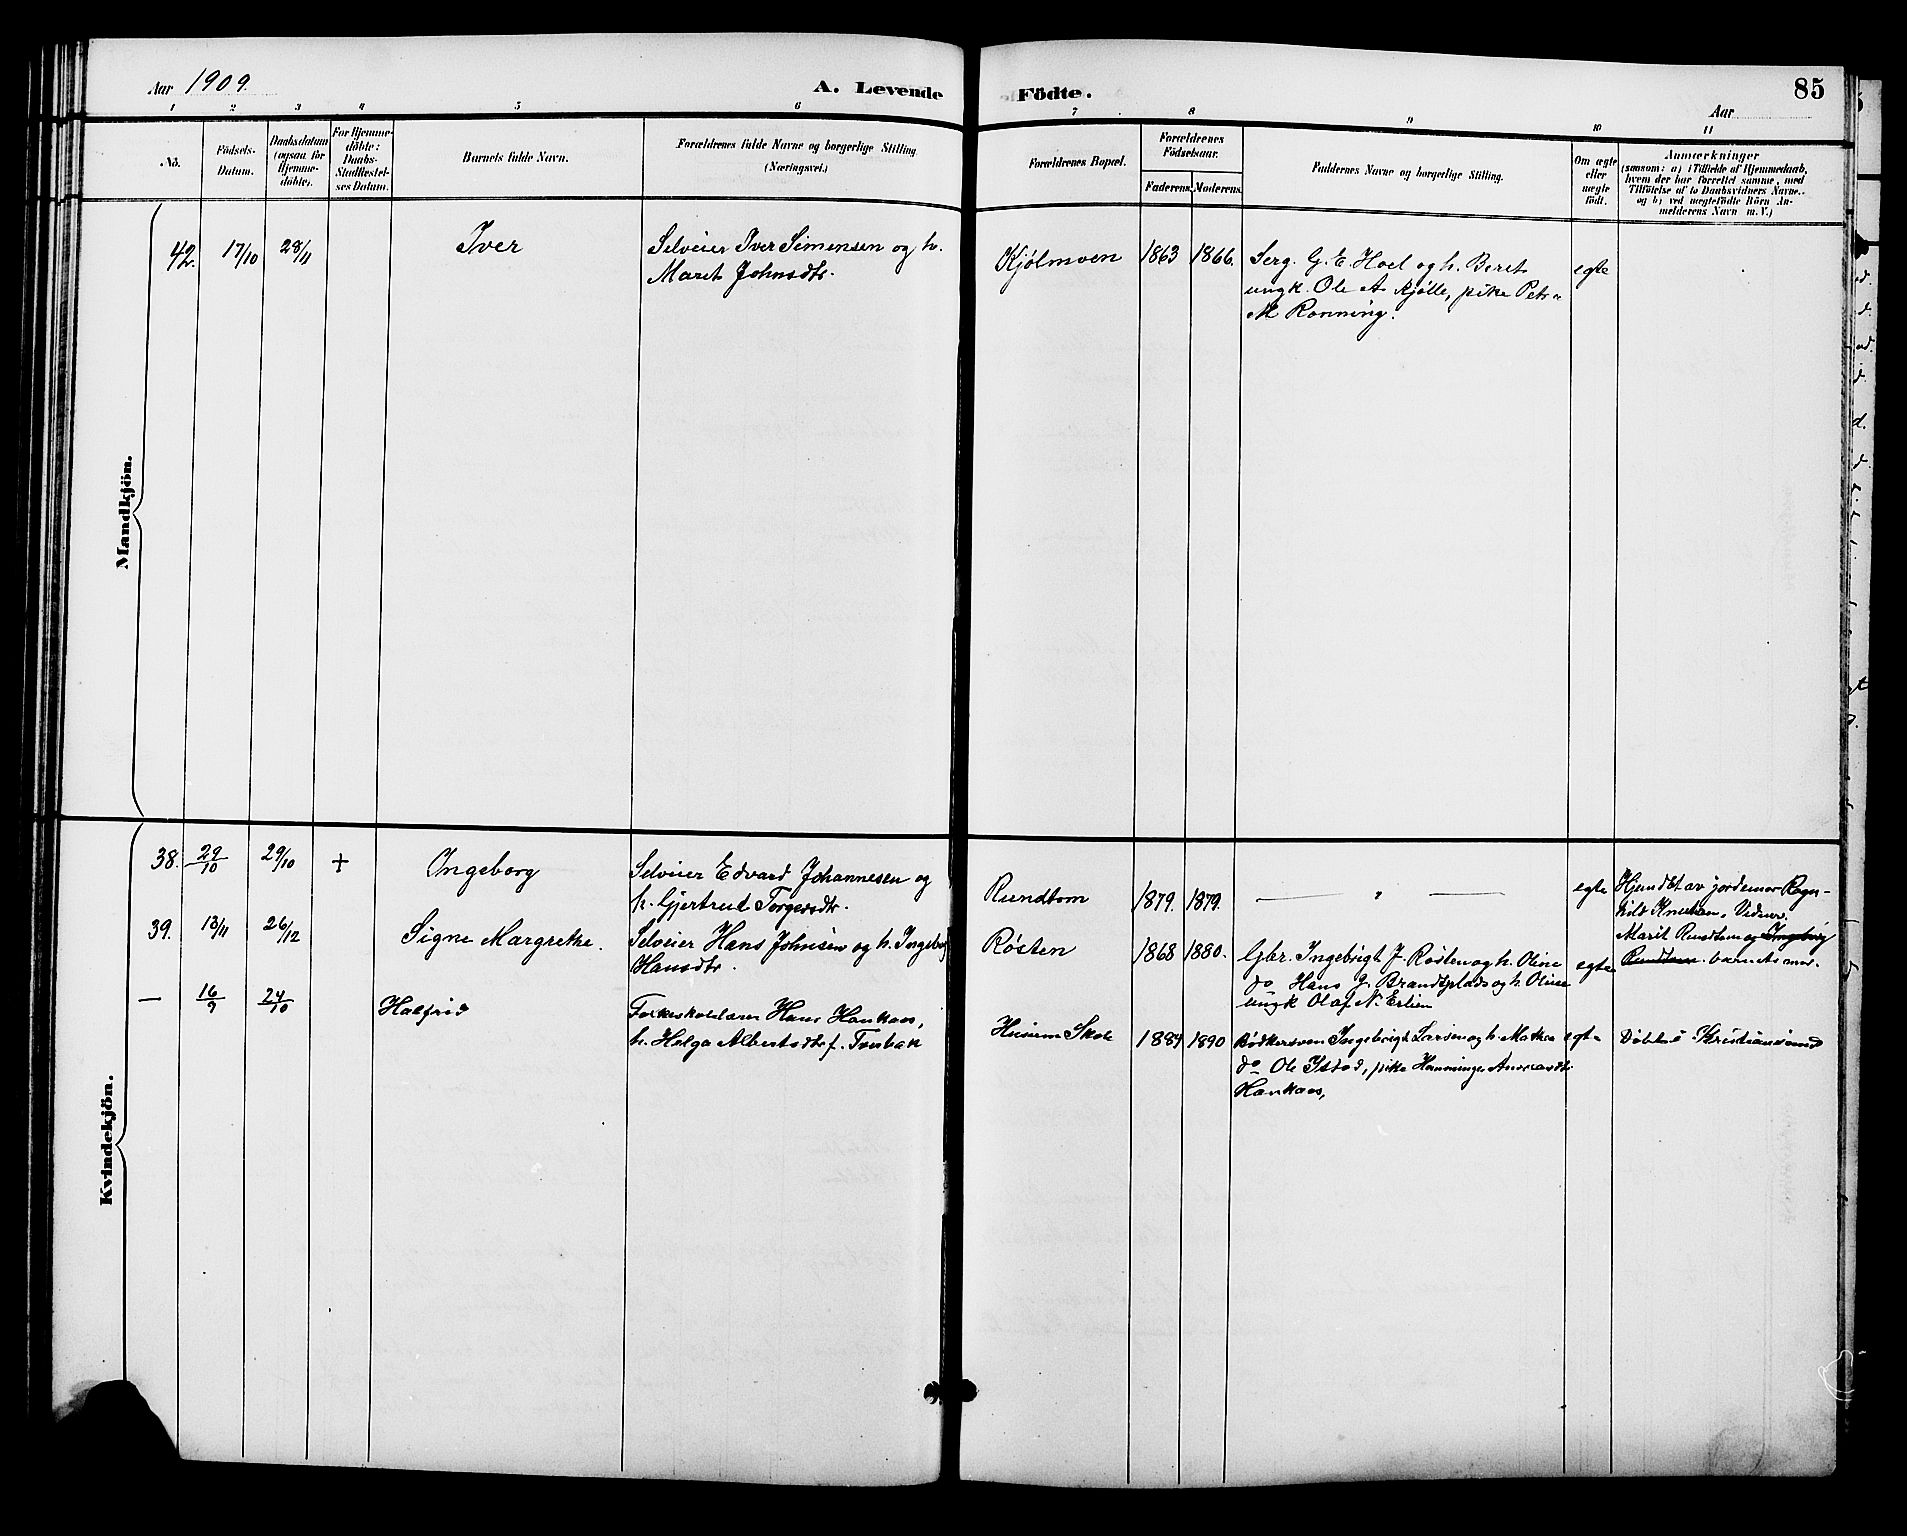 Aar 1909.
A. Levende Födte.
85
Aar
1 2 3 4 5 6 7 8 9 10 11
No.
Födsels-Datum.
Daabsdatum (ogsaa for Hjemme-döbte).
For Hjemme-döbte: Daabs-Stadfæstel-ses Datum.
Barnets fulde Navn.
Forældrenes fulde Navne og borgerlige Stilling (Næringsvei.)
Forældrenes Bopæl.
Forældrenes Födselsaar.
Faderens. Moderens.
Faddernes Navne og borgerlige Stilling.
Om ægte eller uægte födt.
Anmærkninger
(saasom: a) i Tilfælde af Hjemmedaab,
hvem der har forrettet samme, med
Tilföielse af to Daabsvidners Navne.
og b) ved uægtefödte Börn An-
melderens Navn m. V.)
Mandkjön.
42. 17/10 28/11 Iver
Selveier Iver Simensen og h.
Maret Johnsdtr.
Kjølmoen 1863 1866.
Serg. G. E. Hoel og h. Beret
ungk. Ole A. Kjølle, pike Petr
M Rønning.
egte
Kvindekjön.
38. 29/10 29/10 + Ingeborg
Selveier Edvard Johannesen og
h. Gjertrud Torgersdtr.
Rundtom 1879. 1879. — " — egte
Hjemdbt av jordemor Ragn-
hild Knutsen. Vidner.
Marit Rundtom og Ingeborg
Rundtom barnets mor.
39. 13/11 26/12 Signe Margrethe.
Selveier Hans Johnsen og h. Ingeborg
Hansdtr.
Røsten 1868 1880.
Gbr. Ingebrigt J. Røsten og h. Oline
do Hans J. Brandtplads og h. Oline
ungk Olaf N. Erlien
egte
— 16/9 24/10 Halfrid
Folkeskolelærer Hans Haukaas,
h. Helga Albertsdtr f. Tverbak
Husum Skole 1884 1890
Bødkersven Ingebrigt Larsen og h. Mathea
do Ole Ystad, pike Hanninge Andreasdtr
Haukaas,
egte
Døbt i Kristiansund